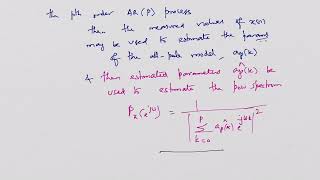 the pth order AR(P) process
then the measured values of x(n)
may be used to estimate the params
of the all-pole model, ap(k)
& then estimated parameters âp(k) be
used to estimate the pow spectrum
Px(e^jω) = 1 / |∑ k=0 p âp(k) e^jωk|^2